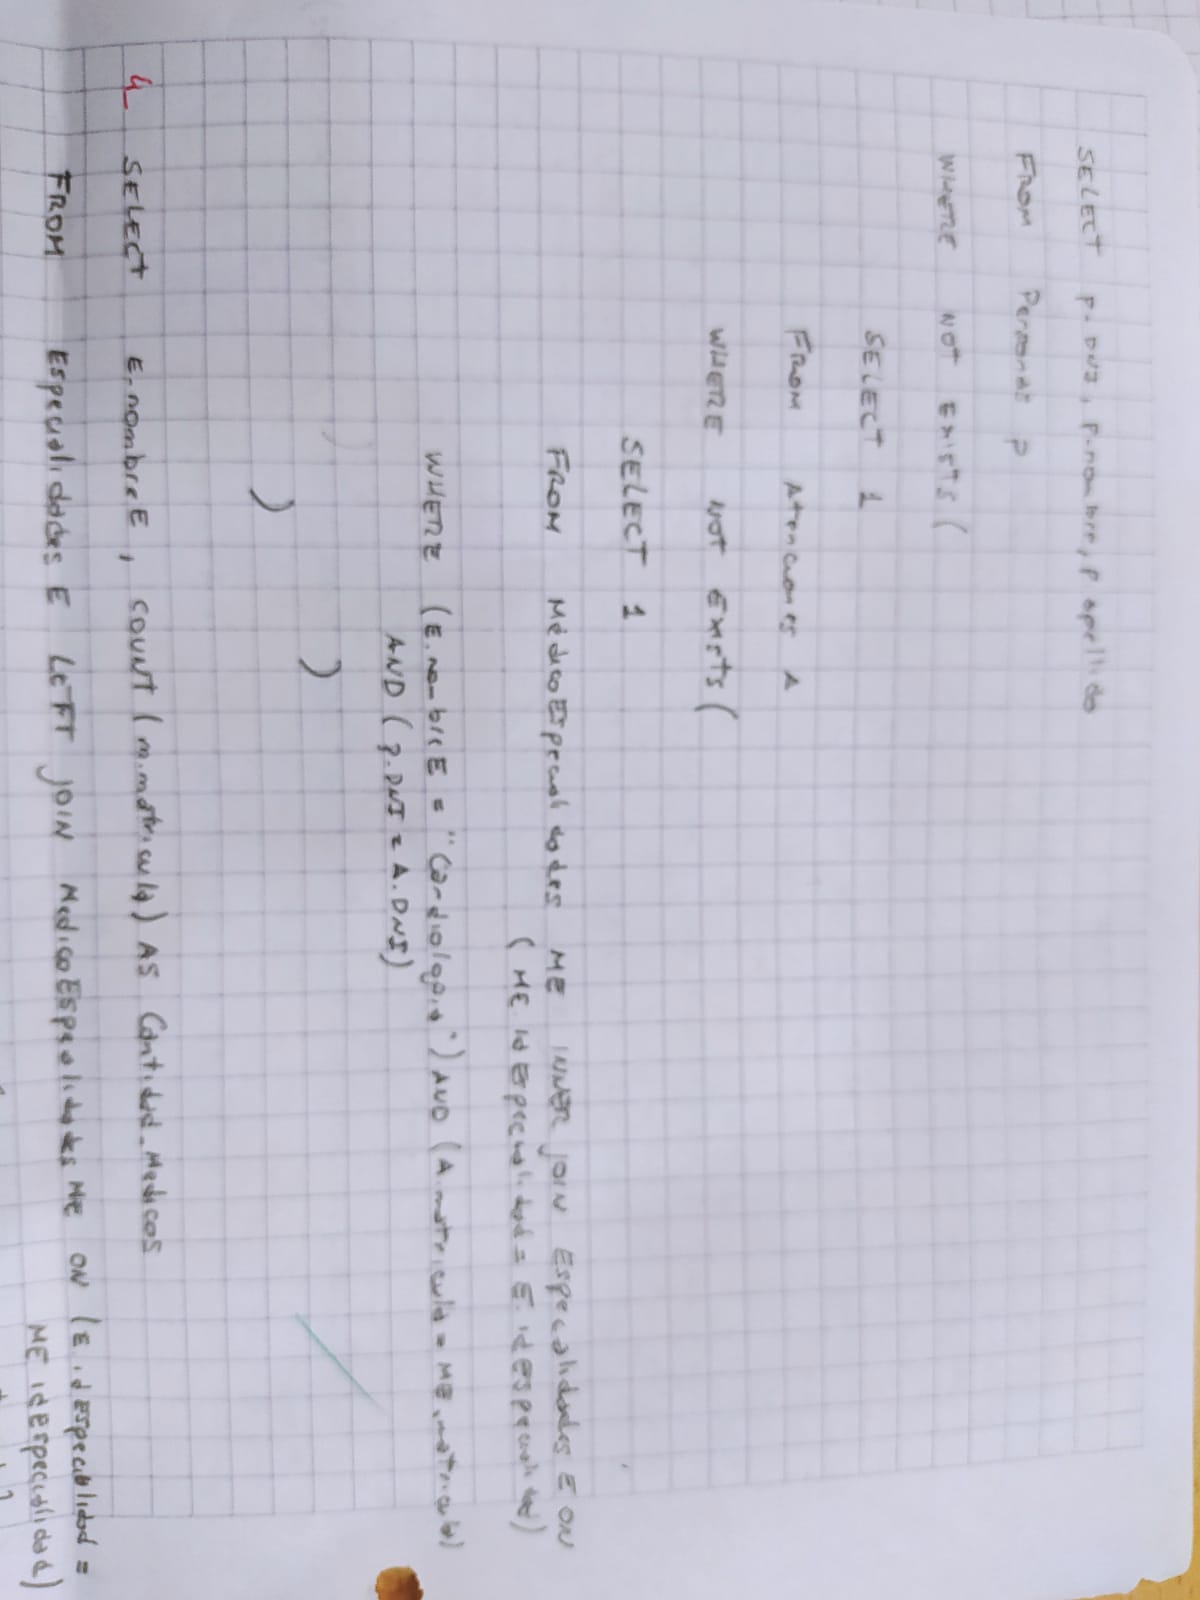 SELECT p.DNI, p.nombre, p apellido
FROM Personas p
WHERE NOT EXISTS (
SELECT 1
FROM Atenciones A
WHERE NOT EXISTS (
SELECT 1
FROM MédicoEspecialidades ME INNER JOIN Especialidades E ON
(ME.idEspecialidad = E.idEspecialidad)
WHERE (E.nombreE = "Cardiología") AND (A.matricula = ME.matricula)
AND (p.DNI = A.DNI)
)
)
4_ SELECT E.nombreE, COUNT (m.matricula) AS Cantidad_Medicos
FROM Especialidades E LEFT JOIN MedicoEspecialidades ME ON (E.idEspecialidad =
ME idEspecialidad)